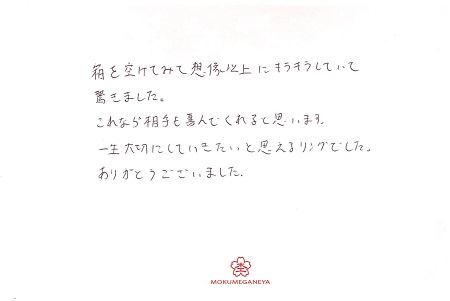 箱を空けてみて想像以上にキラキラしていて
驚きました。
これなら相手も喜んでくれると思います。
一生大切にしていきたいと思えるリングでした。
ありがとうございました。
MOKUMEGANEYA